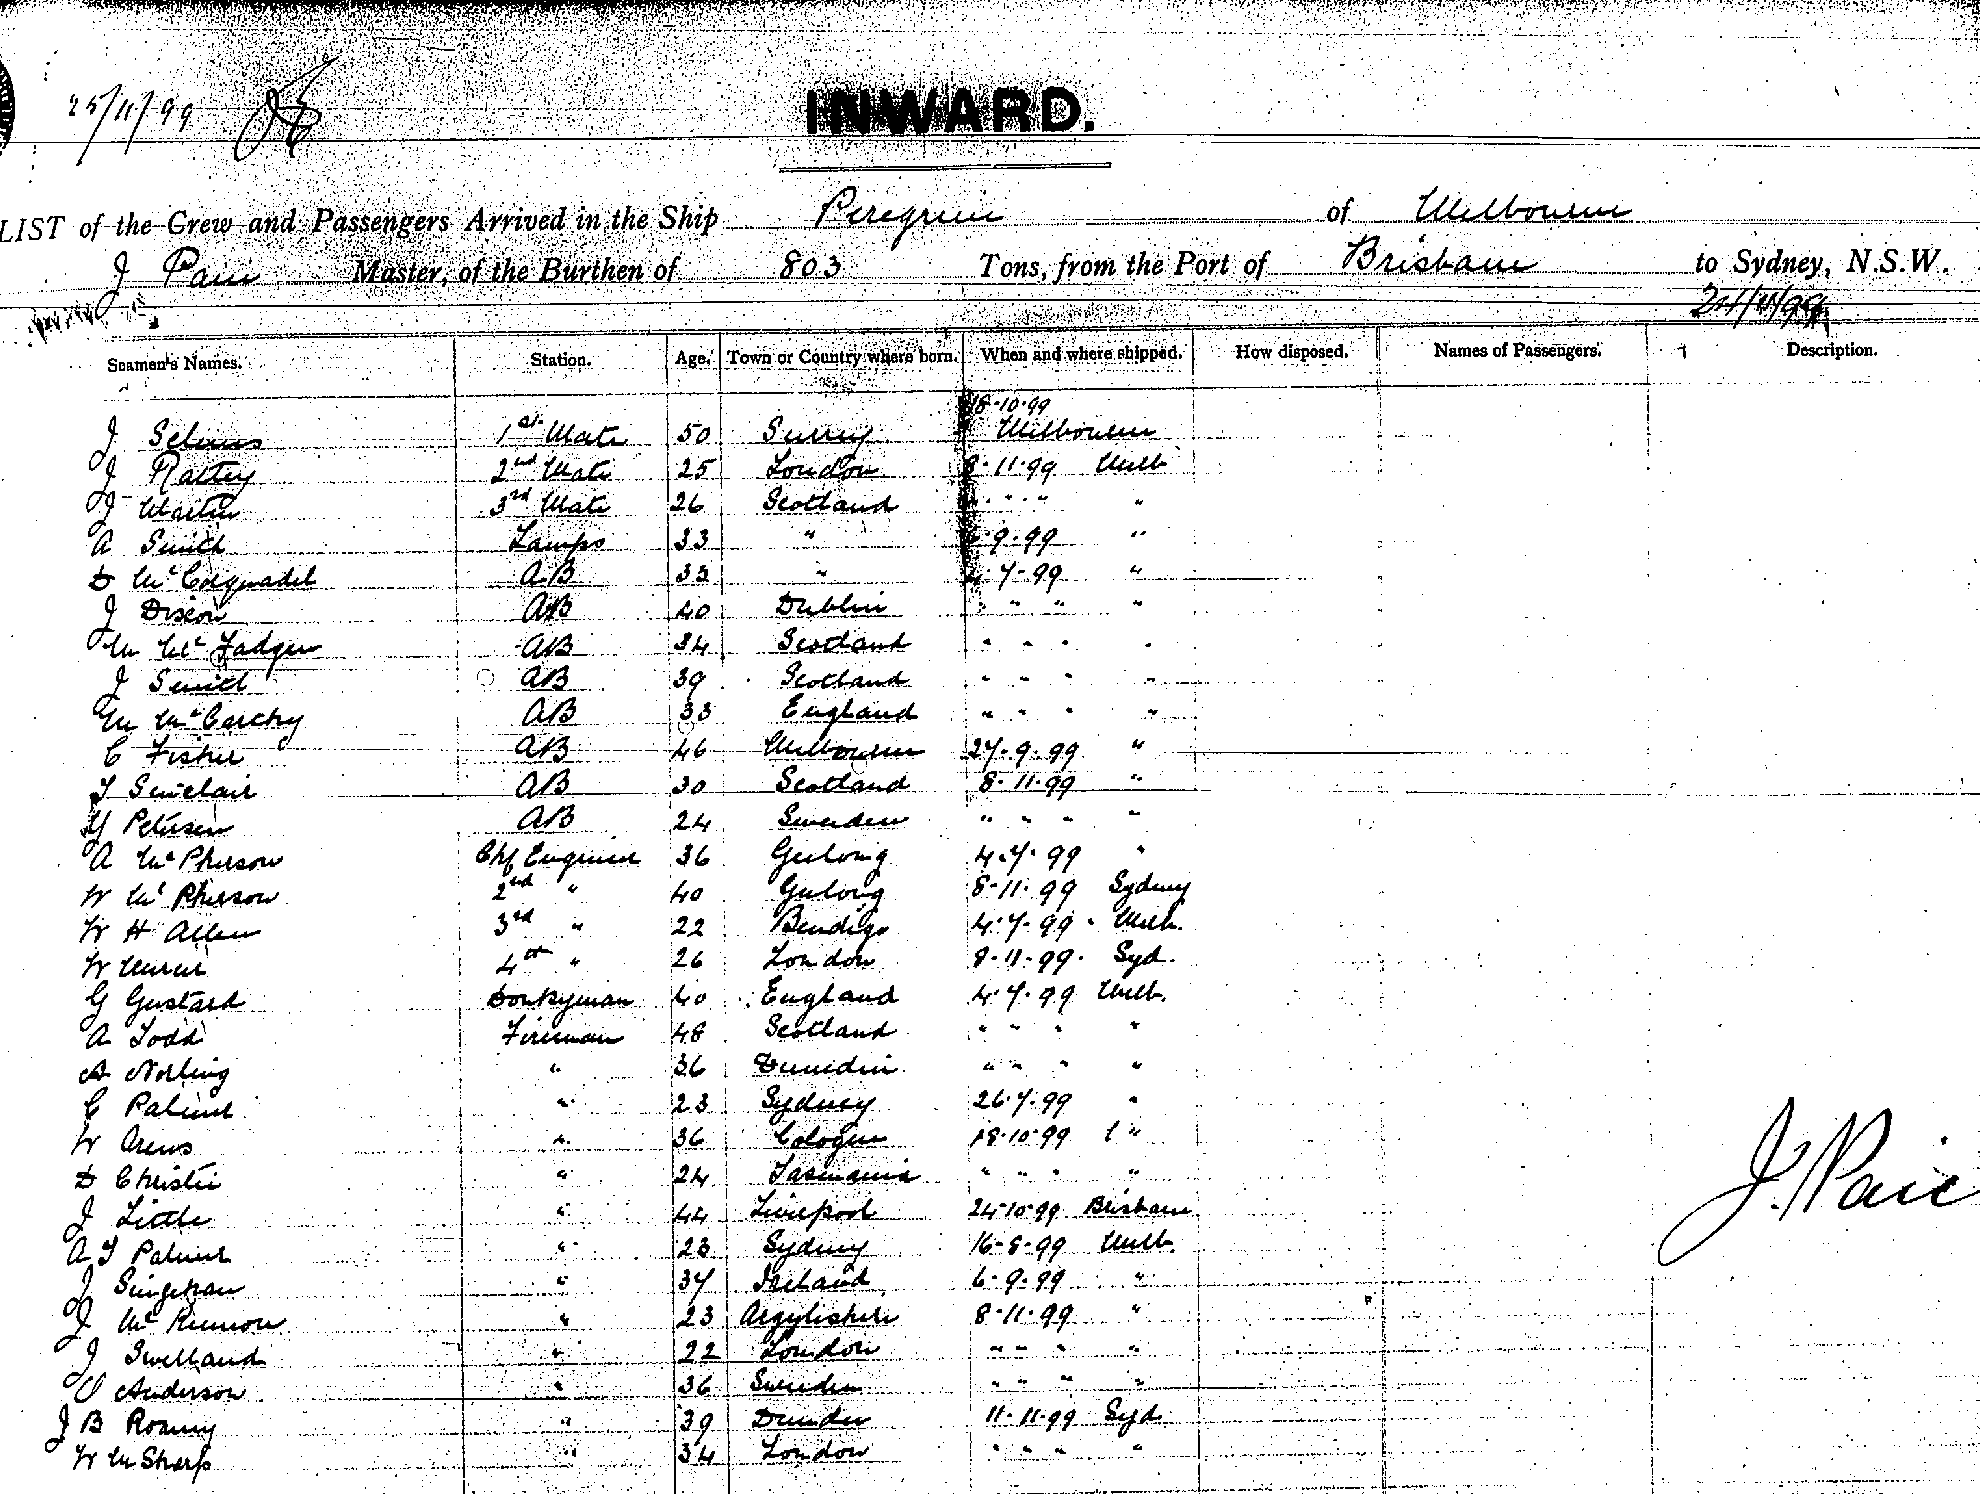 25/11/99
INWARD.
LIST of the Crew and Passengers Arrived in the Ship Peregrine of Melbourne
J Pain Master, of the Burthen of 803 Tons, from the Port of Brisbane to Sydney, N.S.W.
24/11/99
Seamen's Names. Station. Age. Town or Country where born. When and where shipped. How disposed. Names of Passengers. Description.
18-10-99
J 1st Mate 50 Surrey Melbourne
J Rattey 2nd Mate 25 London 8-11-99 Melb
J Martin 3rd Mate 26 Scotland " " " "
A Smith Lamps 33 " 6-9-99 "
D AB 33 " 4-7-99 "
J Dixon AB 40 Dublin " " " "
AB 34 Scotland " " " "
J Smith AB 39 Scotland " " " "
M McCarthy AB 33 England " " " "
C Fisher AB 46 Melbourne 27-9-99 "
T Sinclair AB 30 Scotland 8-11-99 "
Petersen AB 24 Sweden " " " "
A McPherson Chf Engineer 36 Geelong 4-7-99 "
W McPherson 2nd " 40 Geelong 8-11-99 Sydney
W H Allen 3rd " 22 Bendigo 4-7-99 Melb.
W 4th " 26 London 8-11-99 Syd.
G Gustard Donkyman 40 England 4-7-99 Melb.
A Todd Fireman 48 Scotland " " " "
A Norling " 36 Dunedin " " " "
C Palmer " 23 Sydney 26-7-99 "
W " 36 Cologne 18-10-99 "
D Christie " 24 Tasmania " " " "
J Little " 44 Liverpool 24-10-99 Brisbane
A T Palmer " 23 Sydney 16-8-99 Melb.
J " 37 Ireland 6-9-99 "
J McKinnon " 23 Argyleshire 8-11-99 "
J " 22 London " " " "
Anderson " 36 Sweden " " " "
J B " 39 Dundee 11-11-99 Syd
W M Sharp " 34 London " " " "
J. Pain